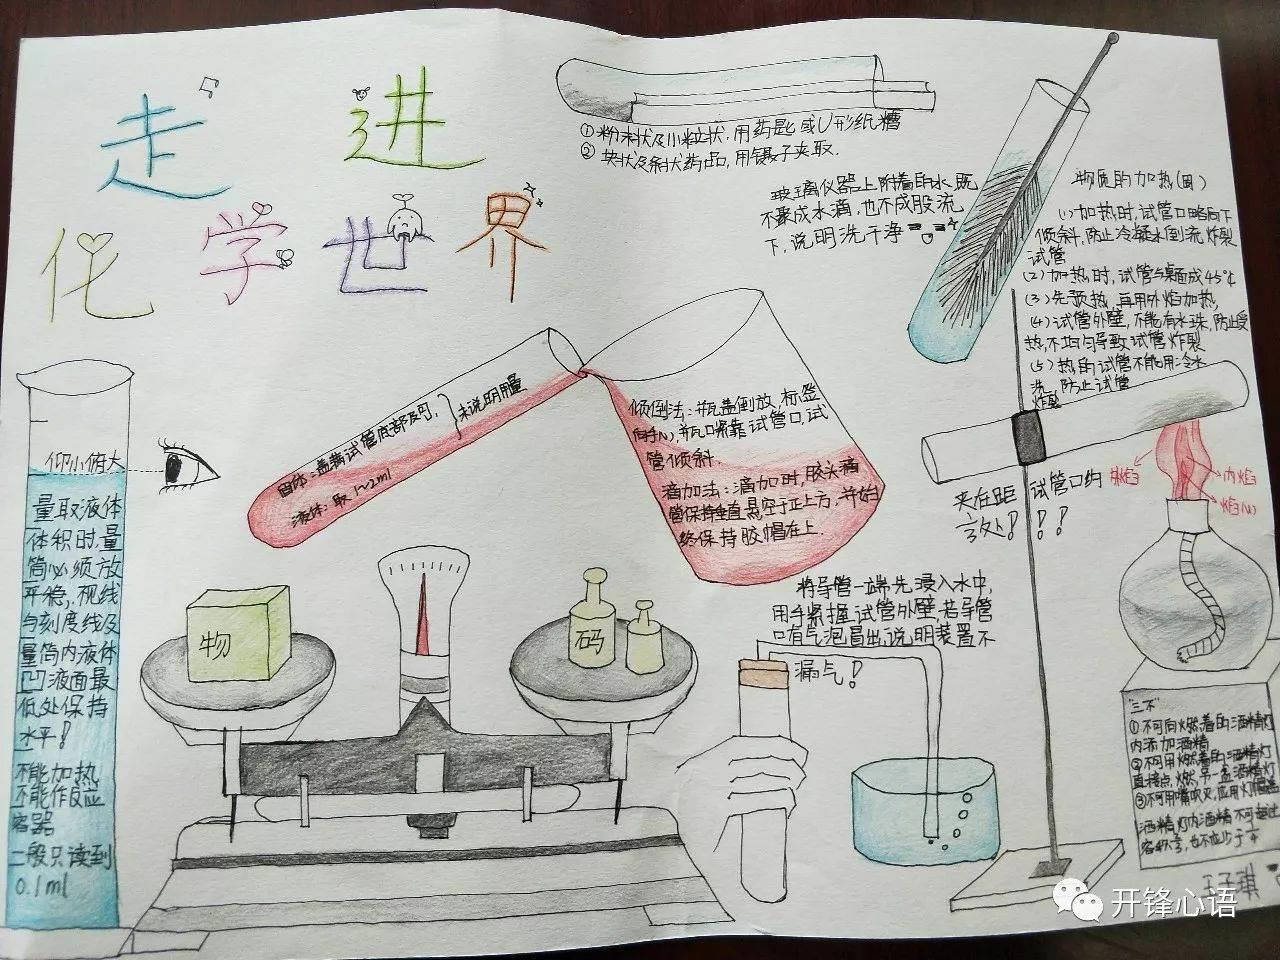 走进
化学世界
①粉末状及小粒状,用药匙或U形纸槽
②块状及条状药品,用镊子夹取.
玻璃仪器上附着的水,既
不聚成水滴,也不成股流
下,说明洗干净
物质的加热(固)
(1)加热时,试管口略向下
倾斜,防止冷凝水倒流炸裂
试管
(2)加热时,试管与桌面成45°
(3)先预热,再用外焰加热,
(4)试管外壁,不能有水珠,防止受
热不均匀导致试管炸裂
(5)热的试管不能用冷水
洗,防止试管
炸裂
仰小俯大
量取液体
体积时,量
筒必须放
平稳,视线
与刻度线及
量筒内液体
凹液面最
低处保持
水平!
不能加热
不能作反应
容器
一般只读到
0.1ml
固体:盖满试管底部即可,
液体:取1~2ml
未说明用量
倾倒法:瓶盖倒放,标签
向手心,瓶口紧靠试管口,试
管倾斜.
滴加法:滴加时,胶头滴
管保持垂直悬空于正上方,并始
终保持胶帽在上.
物
码
将导管一端先浸入水中,
用手紧握试管外壁,若导管
口有气泡冒出,说明装置不
漏气!
夹在距试管口约
处!!!
外焰
内焰
焰心
"三不"
①不可向燃着的酒精灯
内添加酒精
②不可用燃着的酒精灯
直接点燃另一盏酒精灯
③不可用嘴吹灭,应用灯帽盖
酒精灯内酒精不可超过
开锋心语